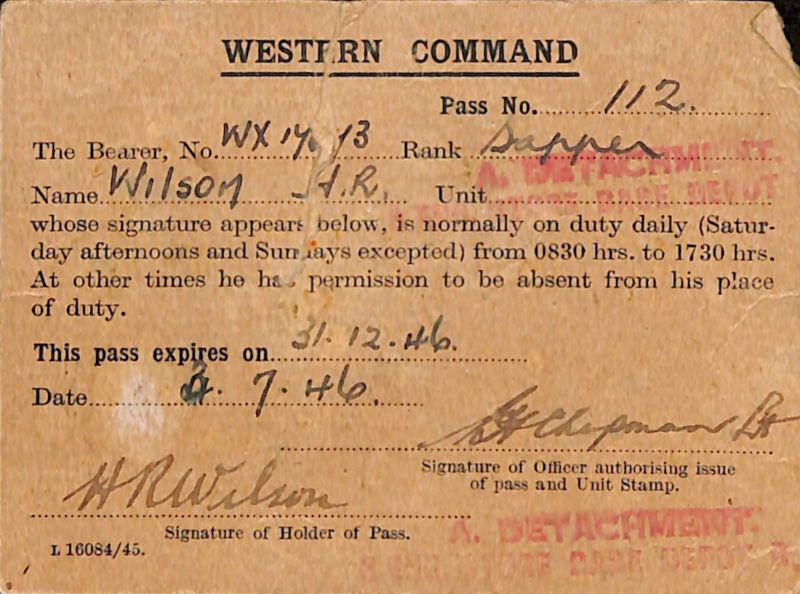 WESTERN COMMAND
Pass No. 112.
The Bearer, No. WX Rank Sapper
Name Wilson H.R. Unit
A. DETACHMENT.
BASE DEPOT
whose signature appears below, is normally on duty daily (Satur-
day afternoons and Sundays excepted) from 0830 hrs. to 1730 hrs.
At other times he has permission to be absent from his place
of duty.
This pass expires on 31.12.46.
Date 7.46.
Chapman Lt
Signature of Officer authorising issue
of pass and Unit Stamp.
H R Wilson
Signature of Holder of Pass.
A. DETACHMENT.
STORE BASE DEPOT
L 16084/45.